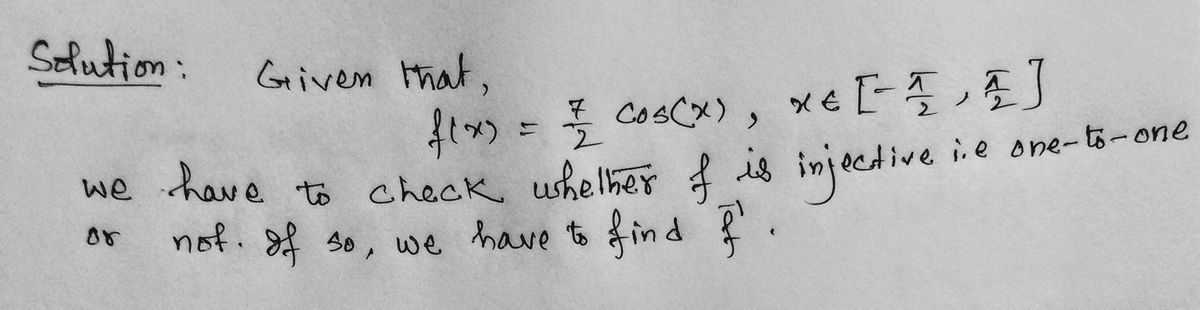 Solution: Given that,
f(x) = 7/2 cos(x), x ∈ [-π/2, π/2]
we have to check whether f is injective i.e one-to-one
or not. If so, we have to find f⁻¹.